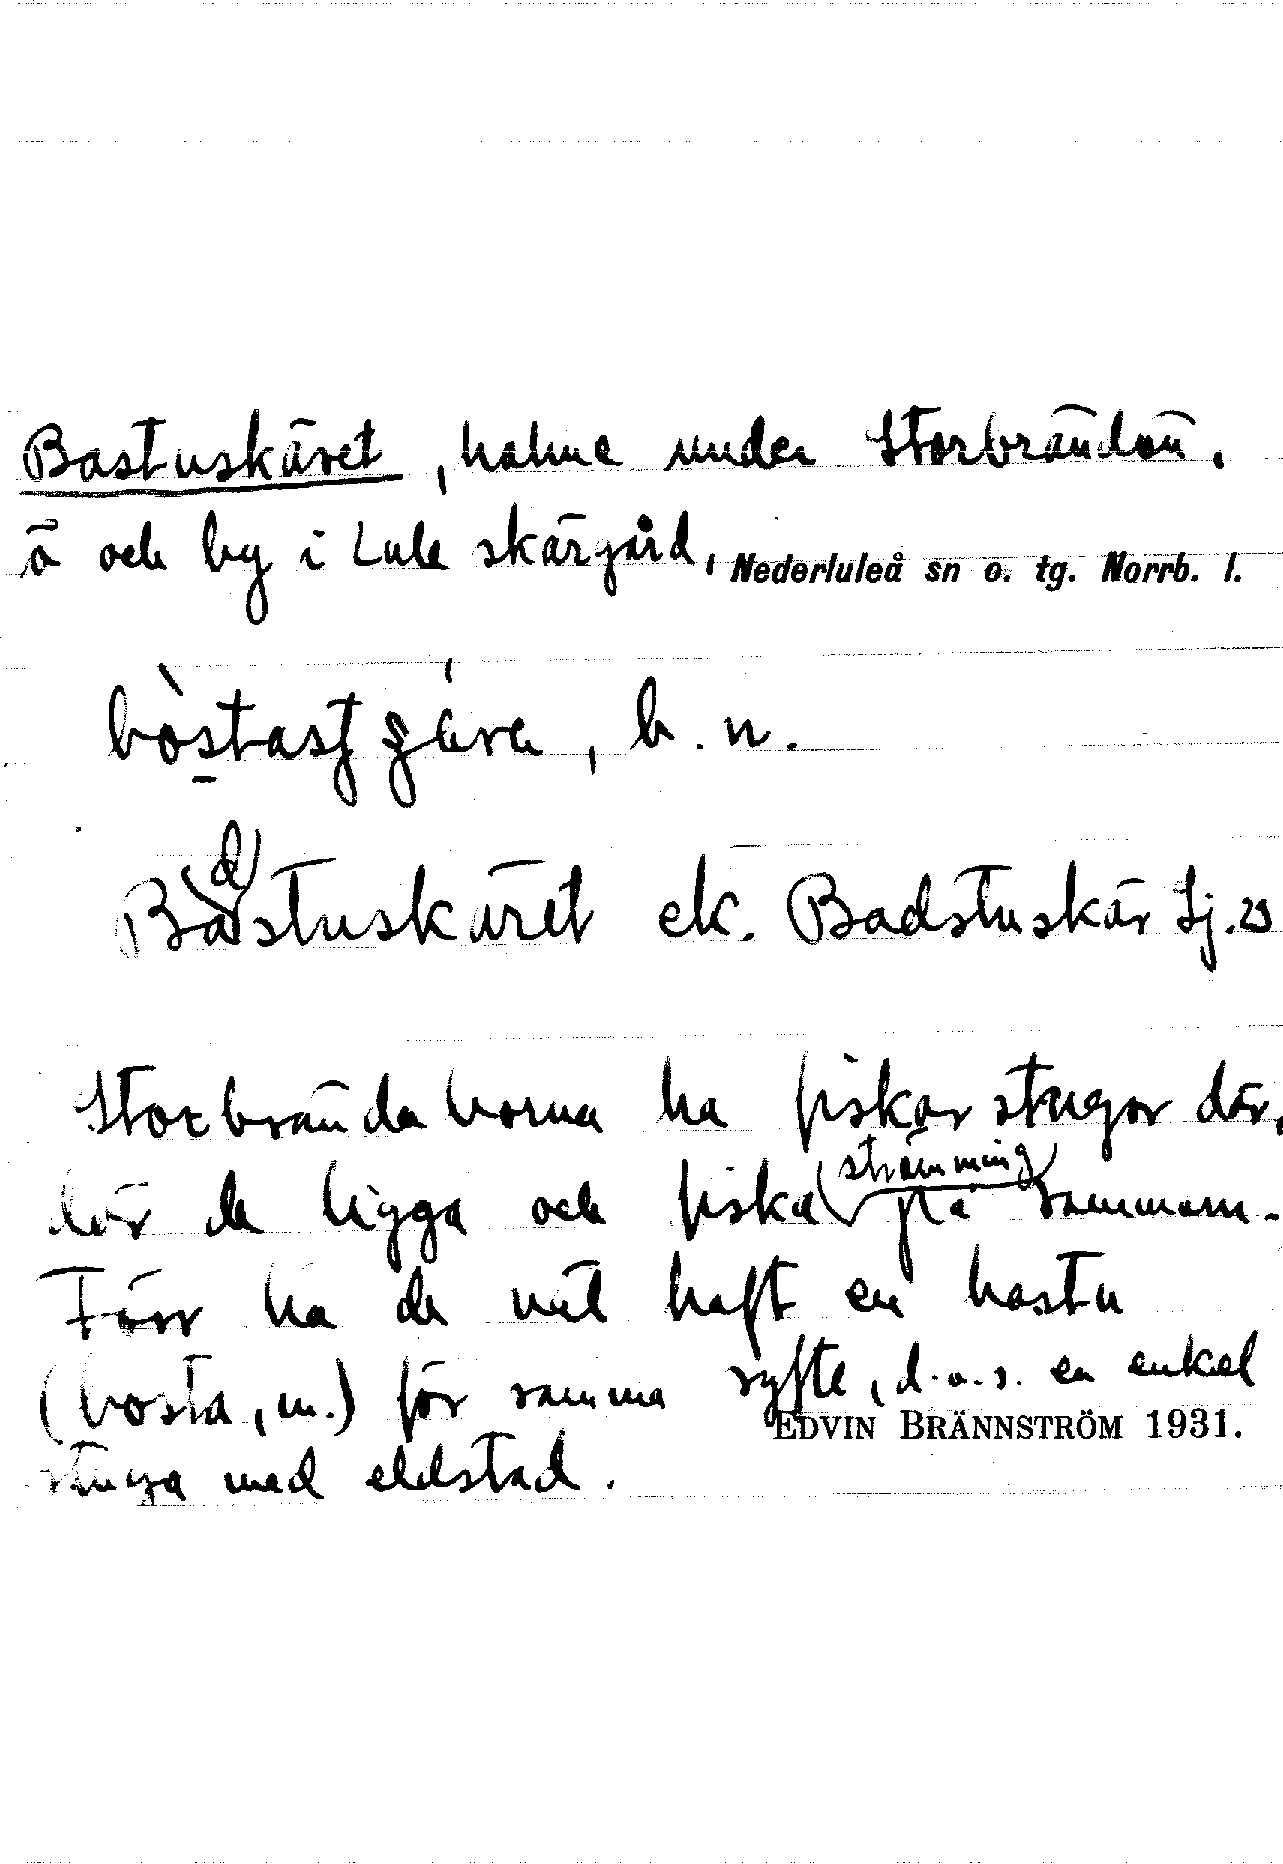 Bastuskäret, holme under Storbrändön,
ö och by i Lule skärgård, Nederluleå sn o. tg. Norrb. l.
b. n.
Ba(d)stuskäret ek. Badstuskär Sj. 23
Storbrändaborna ha fiskarstugor där,
där de ligga och fiska (strömming) på sommarn.
Förr ha de väl haft en bastu
(bosta, m.) för samma syfte, d.v.s. en enkel
EDVIN BRÄNNSTRÖM 1931.
stuga med eldstad.